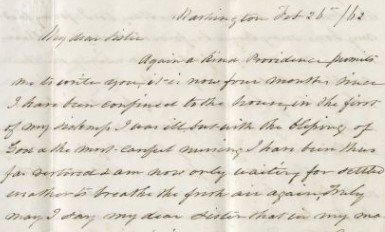 Washington Feb 26th /62
My dear Sister
Again a kind Providence permits
me to write you, it is now four months since
I have been confined to the house, in the first
of my I was ill, but with the blessing of
God & the most careful nursing, I have been thus
far restored & am now only waiting for settled
weather to breathe the fresh air again, truly
may I say my dear Sister that in my ma